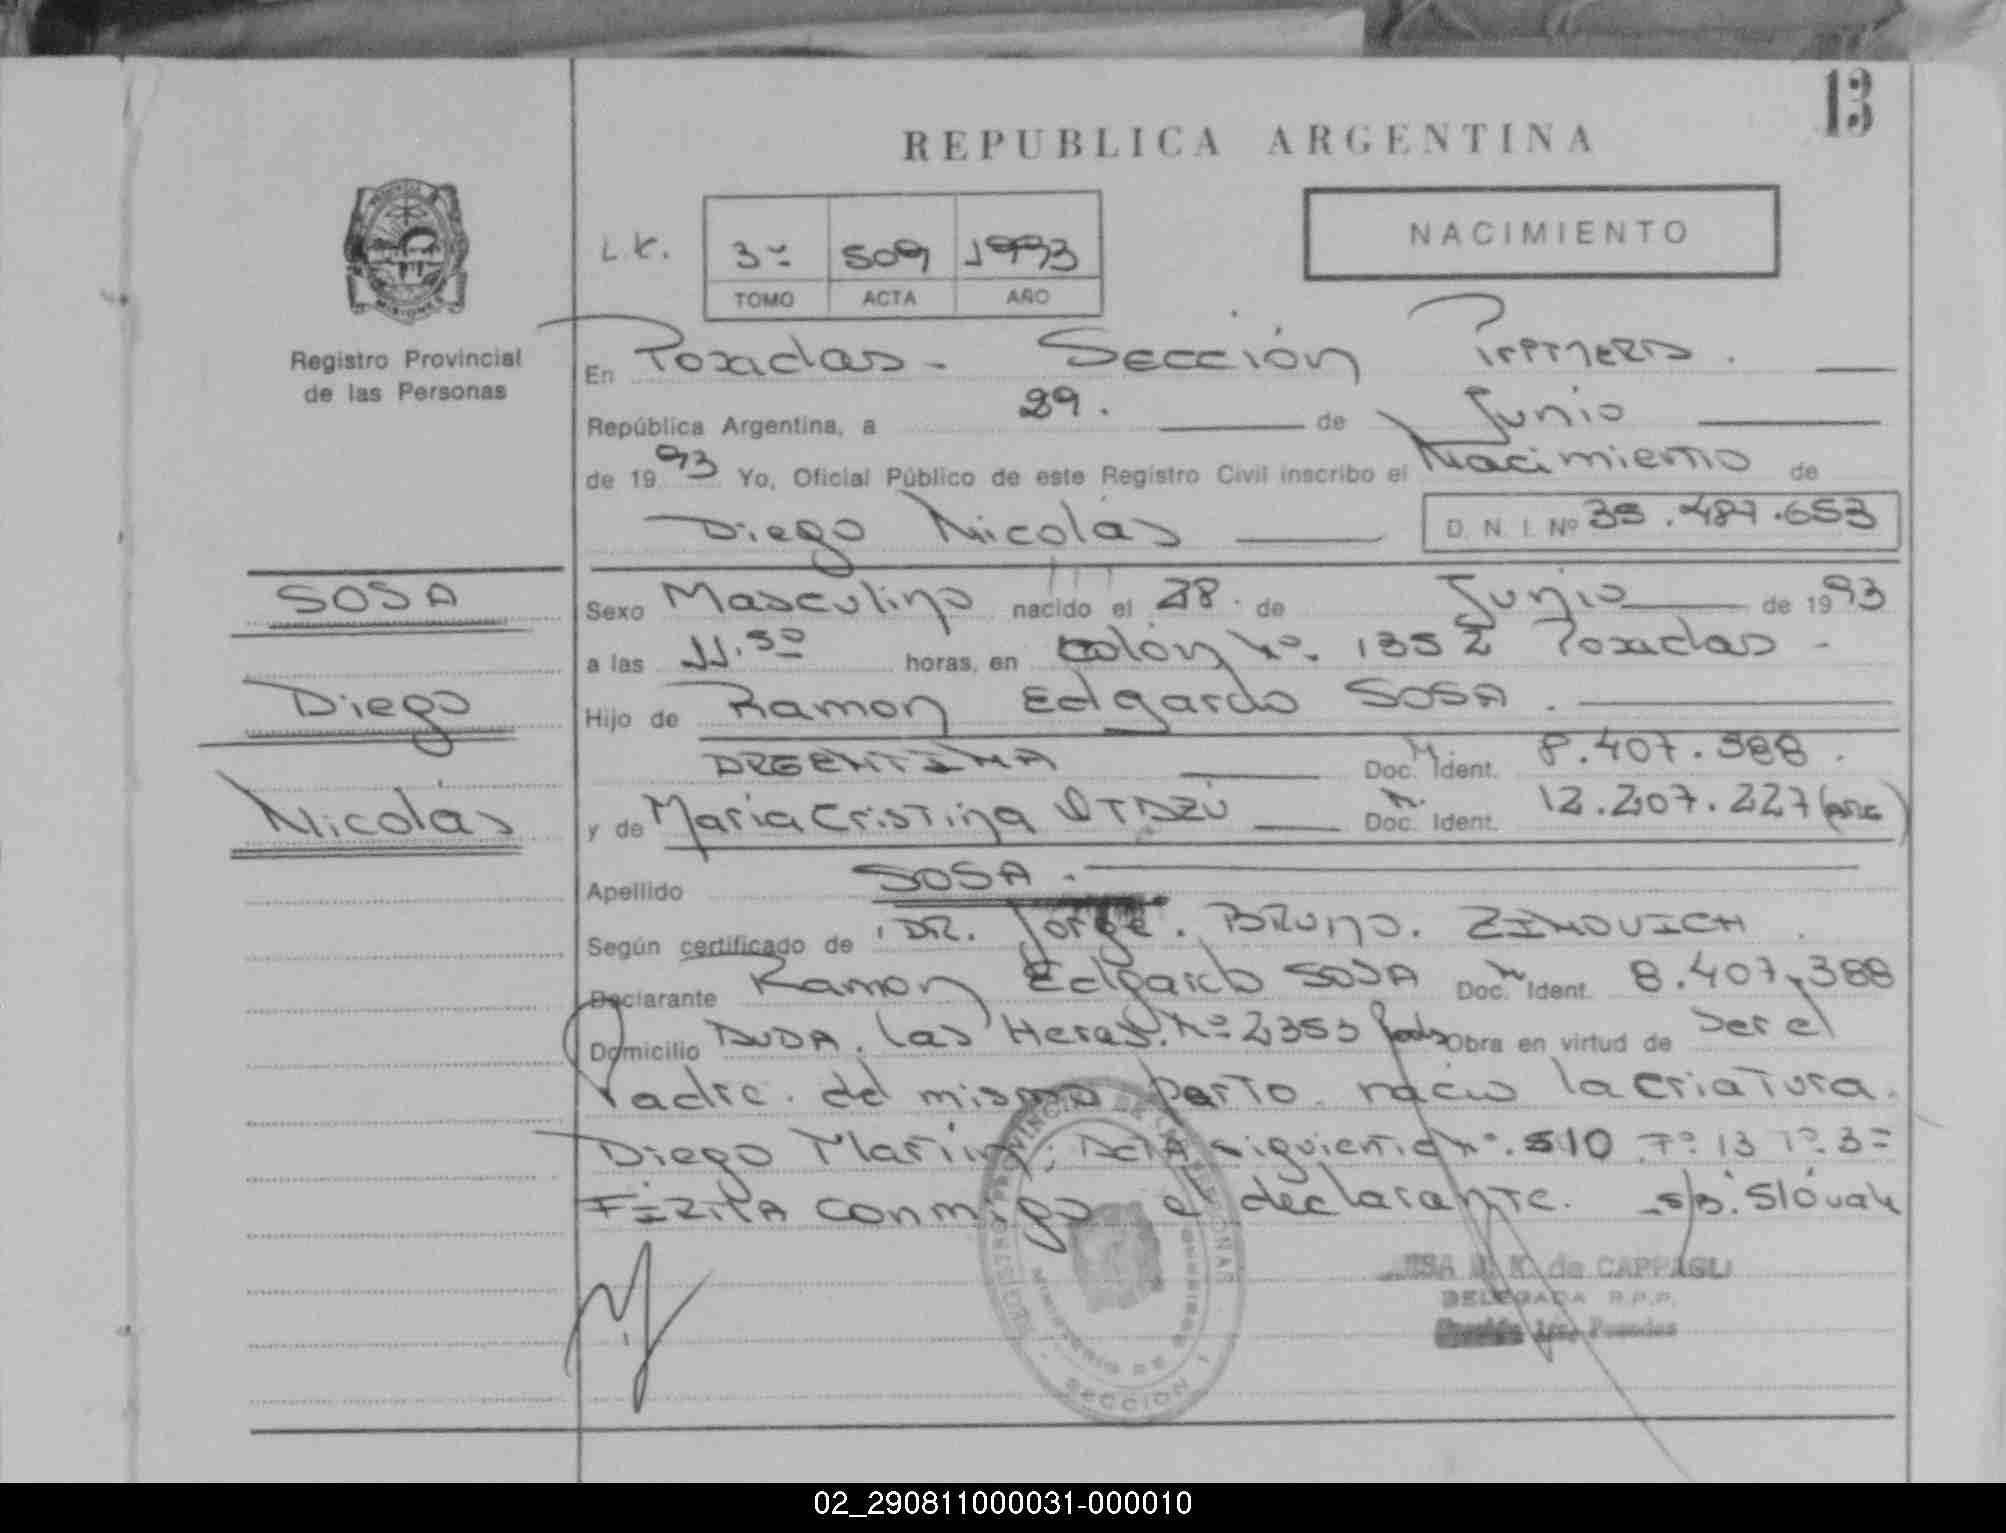 13
REPUBLICA ARGENTINA
NACIMIENTO
3º 509 1993
TOMO ACTA AÑO
Registro Provincial
de las Personas
En Posadas - Sección Primera.
República Argentina, a 29. de Junio
de 1993 Yo, Oficial Público de este Registro Civil inscribo el Nacimiento de
Diego Nicolás D. N. I. Nº 35.487.653
SOSA
Diego
Nicolás
Sexo Masculino nacido el 28. de Junio de 1993
a las 11.50 horas, en colón Nº. 1352 Posadas -
Hijo de Ramon Edgardo SOSA.
ARGENTINA Doc. M. Ident. 8.407.388.
y de María Cristina Doc. Ident. 12.207.227 (arg)
Apellido SOSA.
Según certificado de DR. Jorge. Bruno. ZINOVICH
Declarante Ramon Edgardo SOSA Doc. Ident. 8.407.388
Domicilio AVDA. Las Heras. Nº 2353 Obra en virtud de ser el
Padre. del mismo parto nacio la criatura.
Diego Martín, Acta siguiente Nº. 510 Fº 13 Tº. 3º
FIRMA conmigo el declarante. s/b.
REGISTRO PROVINCIAL DE LAS PERSONAS
MINISTERIO DE GOBIERNO
SECCION 1
de CAPPAGLI
DELEGADA R.P.P.
Posadas
02_290811000031-000010